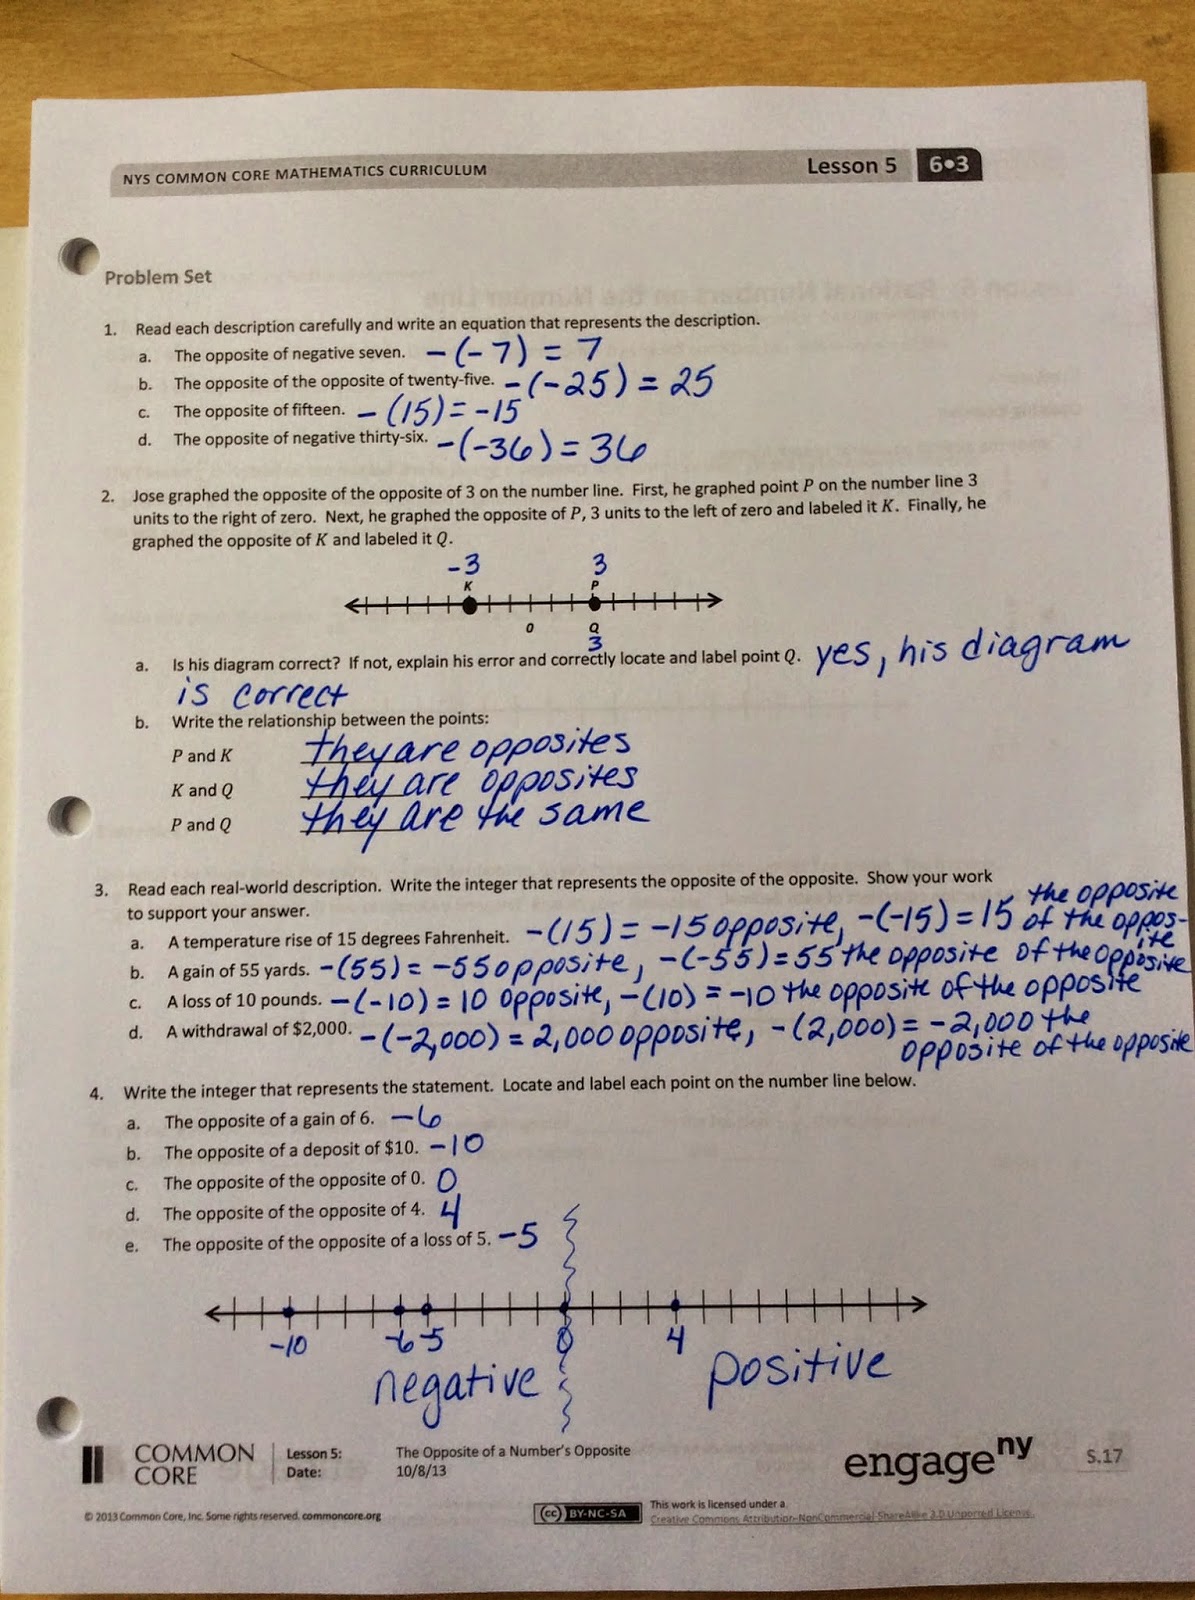 NYS COMMON CORE MATHEMATICS CURRICULUM Lesson 5 6•3
Problem Set
1. Read each description carefully and write an equation that represents the description.
a. The opposite of negative seven. -(-7) = 7
b. The opposite of the opposite of twenty-five. -(-25) = 25
c. The opposite of fifteen. -(15) = -15
d. The opposite of negative thirty-six. -(-36) = 36
2. Jose graphed the opposite of the opposite of 3 on the number line. First, he graphed point P on the number line 3
units to the right of zero. Next, he graphed the opposite of P, 3 units to the left of zero and labeled it K. Finally, he
graphed the opposite of K and labeled it Q.
-3 3
K P
0 Q
3
a. Is his diagram correct? If not, explain his error and correctly locate and label point Q. yes, his diagram
is correct
b. Write the relationship between the points:
P and K they are opposites
K and Q they are opposites
P and Q they are the same
3. Read each real-world description. Write the integer that represents the opposite of the opposite. Show your work
to support your answer. the opposite
a. A temperature rise of 15 degrees Fahrenheit. -(15) = -15 opposite, -(-15) = 15 of the oppos-
ite
b. A gain of 55 yards. -(55) = -55 opposite, -(-55) = 55 the opposite of the opposite
c. A loss of 10 pounds. -(-10) = 10 opposite, -(10) = -10 the opposite of the opposite
d. A withdrawal of $2,000. -(-2,000) = 2,000 opposite, -(2,000) = -2,000 the
opposite of the opposite
4. Write the integer that represents the statement. Locate and label each point on the number line below.
a. The opposite of a gain of 6. -6
b. The opposite of a deposit of $10. -10
c. The opposite of the opposite of 0. 0
d. The opposite of the opposite of 4. 4
e. The opposite of the opposite of a loss of 5. -5
-10 -6 -5 0 4
negative positive
COMMON CORE
Lesson 5: The Opposite of a Number's Opposite
Date: 10/8/13
engageny S.17
© 2013 Common Core, Inc. Some rights reserved. commoncore.org
cc BY-NC-SA
This work is licensed under a
Creative Commons Attribution-NonCommercial-ShareAlike 3.0 Unported License.